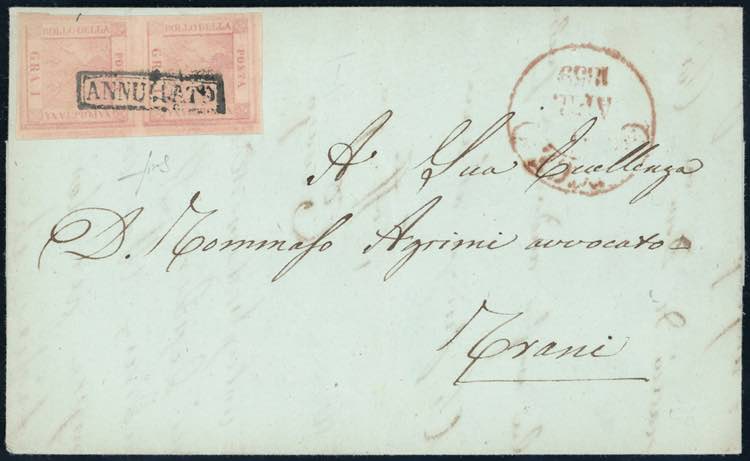 BOLLO DELLA
POSTA
NAPOLETANA
GRA 1
BOLLO DELLA
POSTA
NAPOLETANA
ANNULLATO
1859
A Sua Eccellenza
D. Tommaso Agrimi avvocato
Trani